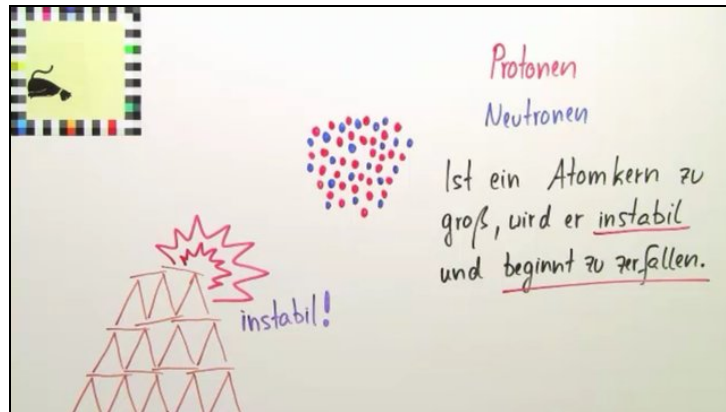 Protonen
Neutronen
Ist ein Atomkern zu
groß, wird er instabil
und beginnt zu zerfallen.
instabil!